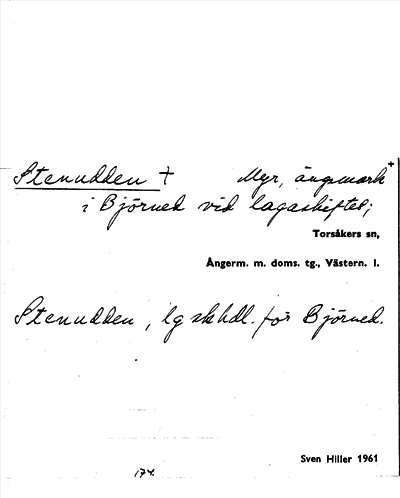 Stenudden † Myr, ängsmark +
i Björned vid lagaskiftet;
Torsåkers sn,
Ångerm. m. doms. tg., Västern. l.
Stenudden, lgskhdl. för Björned.
Sven Hiller 1961
174.